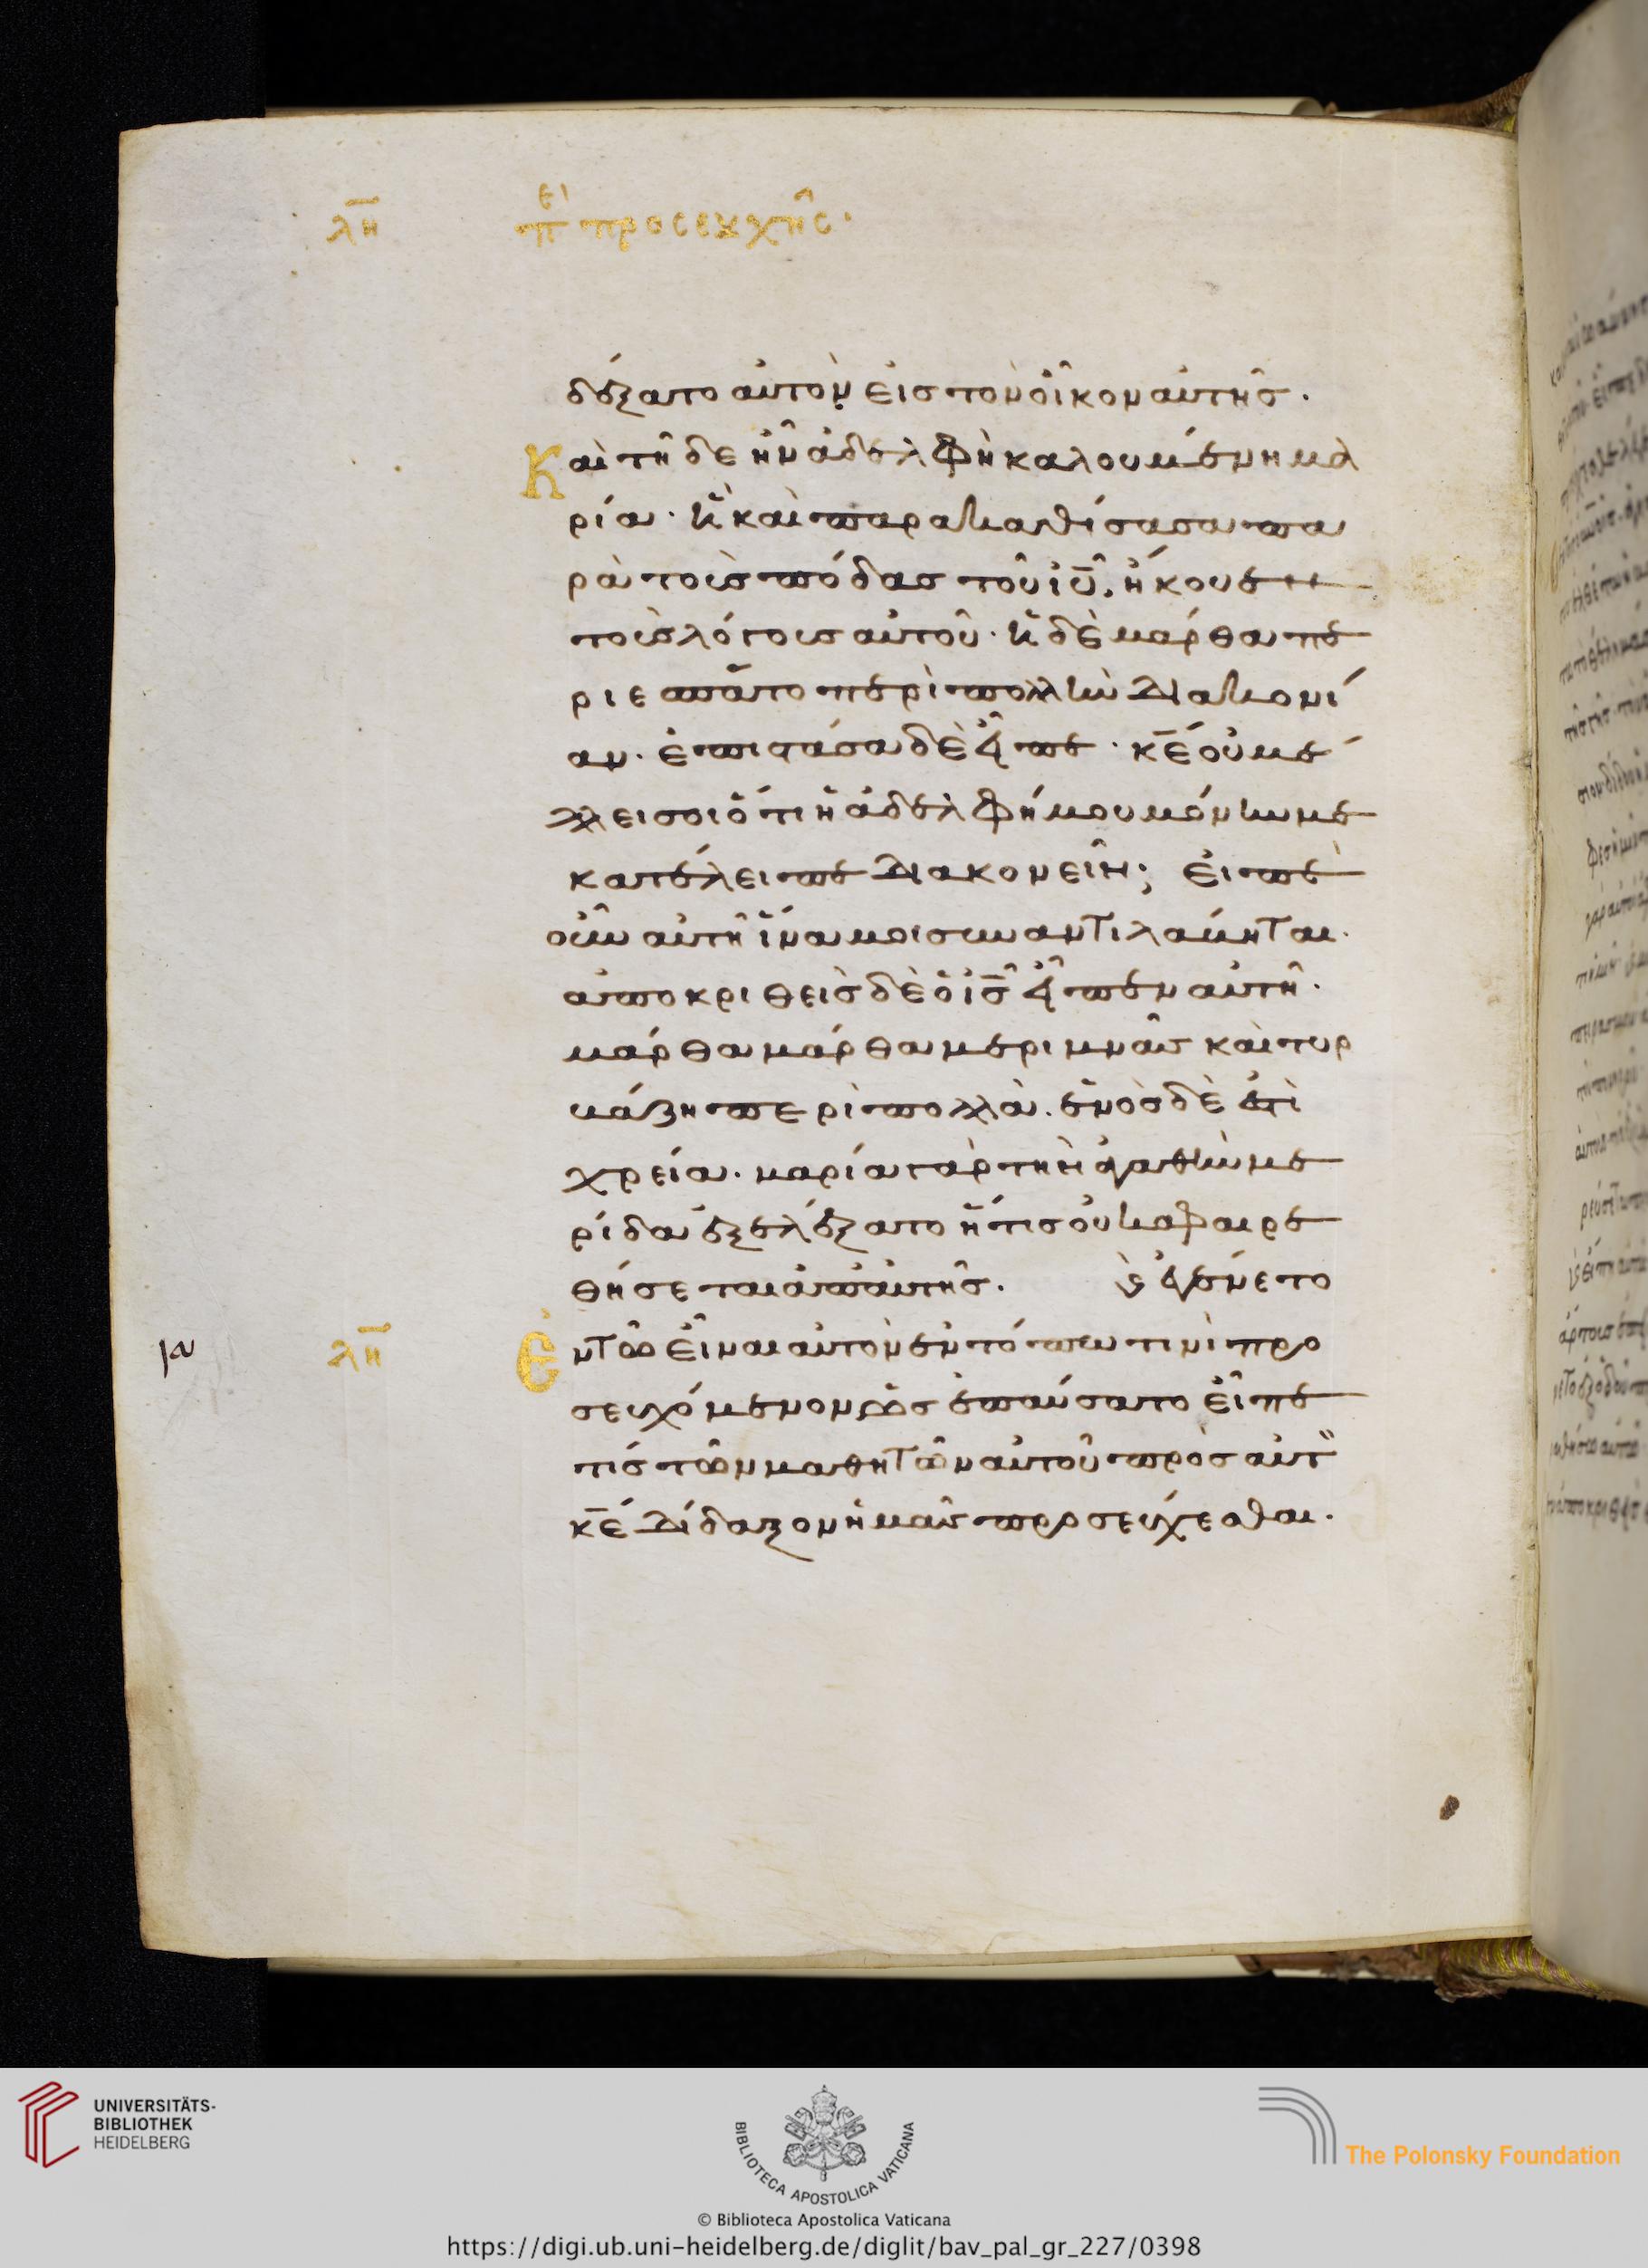 λη πε προσευχῆς·
δέξατο αὐτὸν εἰς τὸν οἶκον αὐτῆς.
Καὶ τῆδε ἦν ἀδελφὴ καλουμένη μα
ρία· ἣ καὶ παρακαθίσασα πα
ρὰ τοὺς πόδας τοῦ ἰῦ, ἤκουεν
τοὺς λόγους αὐτοῦ· ἡ δὲ μάρθα πε
ριεσπᾶτο περὶ πολλὴν διακονί
αν· ἐπιστᾶσα δὲ εἶπε· κέ οὐ μέ
λλει σοι ὅτι ἡ ἀδελφή μου μόνην με
κατέλειπε διακονεῖν; εἰπὲ
οὖν αὐτῆ ἵνα μοι συναντιλάβηται·
ἀποκριθεὶς δὲ ὁ ἰς εἶπεν αὐτῆ·
μάρθα μάρθα μεριμνᾶς καὶ τυρ
βάζη περὶ πολλὰ· ἑνὸς δὲ ἐστὶ
χρεία· μαρία γὰρ τὴν ἀγαθὴν με
ρίδα ἐξελέξατο ἥτις οὐκ ἀφαιρε
θήσεται ἀπ' αὐτῆς. καὶ ἐγένετο
λη Ἐν τῶ εἶναι αὐτὸν ἐν τόπω τινὶ προ
σευχόμενον ὡς ἐπαύσατο εἶπέ
τίς τῶν μαθητῶν αὐτοῦ πρὸς αὐτ
κέ δίδαξον ἡμᾶς προσεύχεσθαι.
UNIVERSITÄTS-
BIBLIOTHEK
HEIDELBERG
BIBLIOTECA APOSTOLICA VATICANA
The Polonsky Foundation
© Biblioteca Apostolica Vaticana
https://digi.ub.uni-heidelberg.de/diglit/bav_pal_gr_227/0398